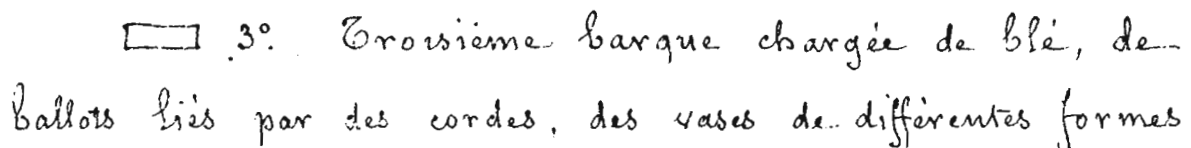 3º. Troisième barque chargée de blé, de
ballots liés par des cordes, des vases de différentes formes